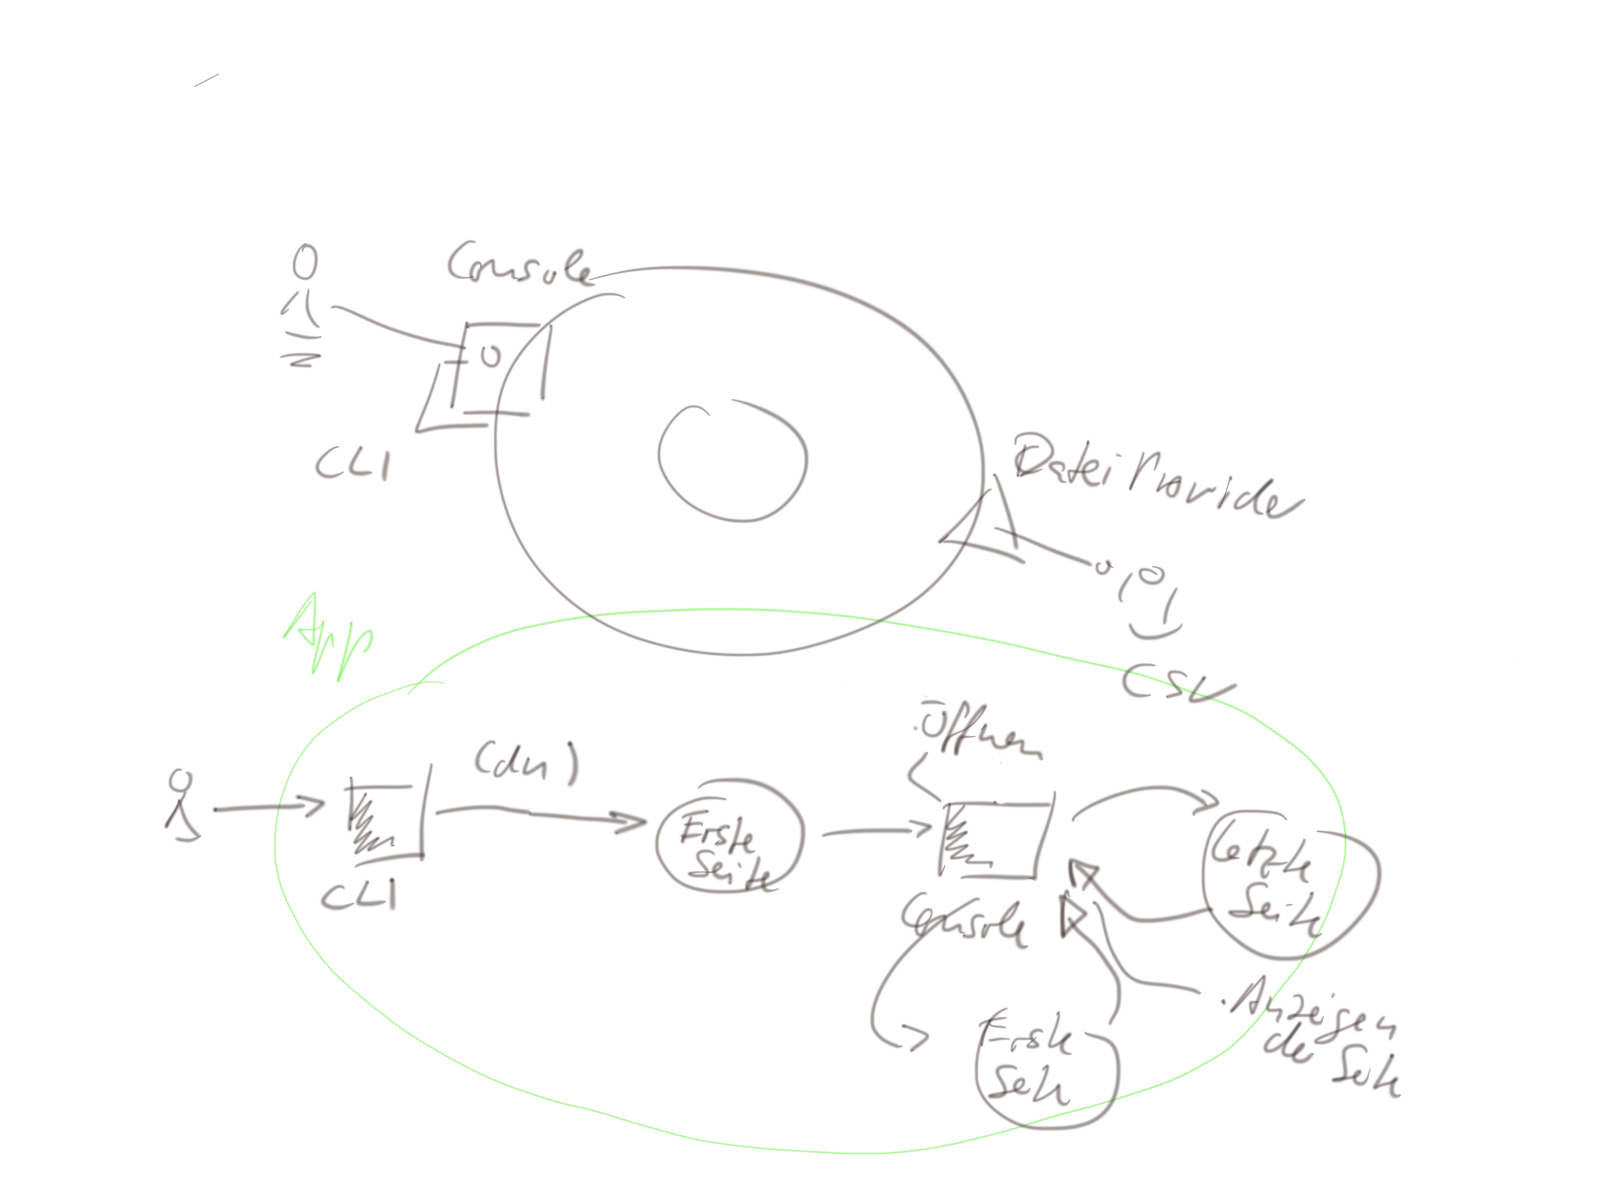 Console
CLI
DateiProvider
CSV
App
Öffnen
(dn)
Erste
Seite
CLI
Console
Letzte
Seite
Erste
Seite
Anzeigen
der Seite